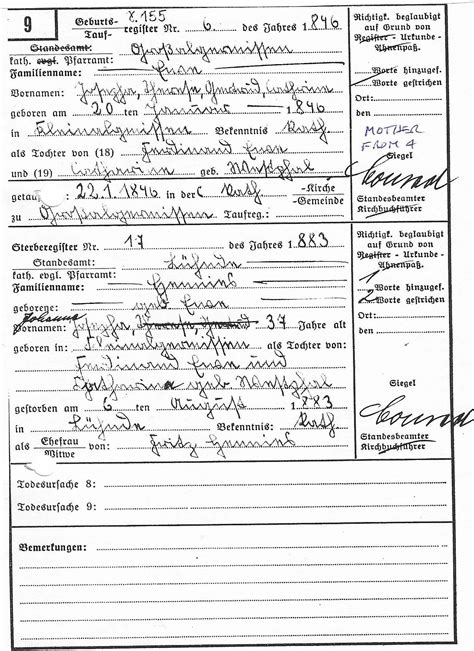 9
Geburts- X.155
Tauf- register Nr. 6. des Jahres 1846
Standesamt:
kath. evgl. Pfarramt: Großalgermissen
Familienname: Evan
Vornamen: Josepha, Therese, Gertrud, Catharina
geboren am 20 ten Januar 1846
in Kleinalgermissen Bekenntnis Kath.
als Tochter von (18) Ferdinand Evan
und (19) Catharina geb. Westphal
getauft 22.1.1846 in der Kath -Kirche
-Gemeinde
zu Großalgermissen Taufreg.:
Richtigk. beglaubigt
auf Grund von
Register - Urkunde -
Ahnenpaß.
Worte hinzugef.
Worte gestrichen
Ort:
den
MOTHER
FROM 4
Siegel
Conrad
Standesbeamter
Kirchbuchführer
Sterberegister Nr. 17 des Jahres 1.883
Standesamt: Lühnde
kath. evgl. Pfarramt:
Familienname: Hennies
geborene: geb Evan
Johanna
Vornamen: Josepha, Therese, Gertrud 37 Jahre alt
geboren in: Kleinalgermissen als Tochter von:
Ferdinand Evan und
Catharina geb Westphal
gestorben am 6 ten August 1.883
in Lühnde Bekenntnis: Kath.
als Ehefrau von: Fritz Hennies
Witwe
Richtigk. beglaubigt
auf Grund von
Register - Urkunde -
Ahnenpaß.
1 Worte hinzugef.
2 Worte gestrichen
Ort:
den
Siegel
Conrad
Standesbeamter
Kirchbuchführer
Todesursache 8:
Todesursache 9:
Bemerkungen: